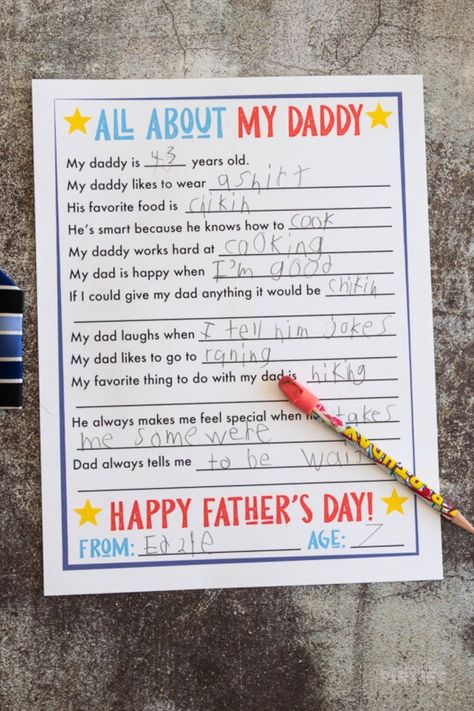 ALL ABOUT MY DADDY
My daddy is 43 years old.
My daddy likes to wear a shirt
His favorite food is chikin
He's smart because he knows how to cook
My daddy works hard at cooking
My dad is happy when I'm good
If I could give my dad anything it would be chikin
My dad laughs when I tell him jokes
My dad likes to go to raning
My favorite thing to do with my dad is hiking
He always makes me feel special when takes
me some were
Dad always tells me to be
HAPPY FATHER'S DAY!
FROM: AGE: 7